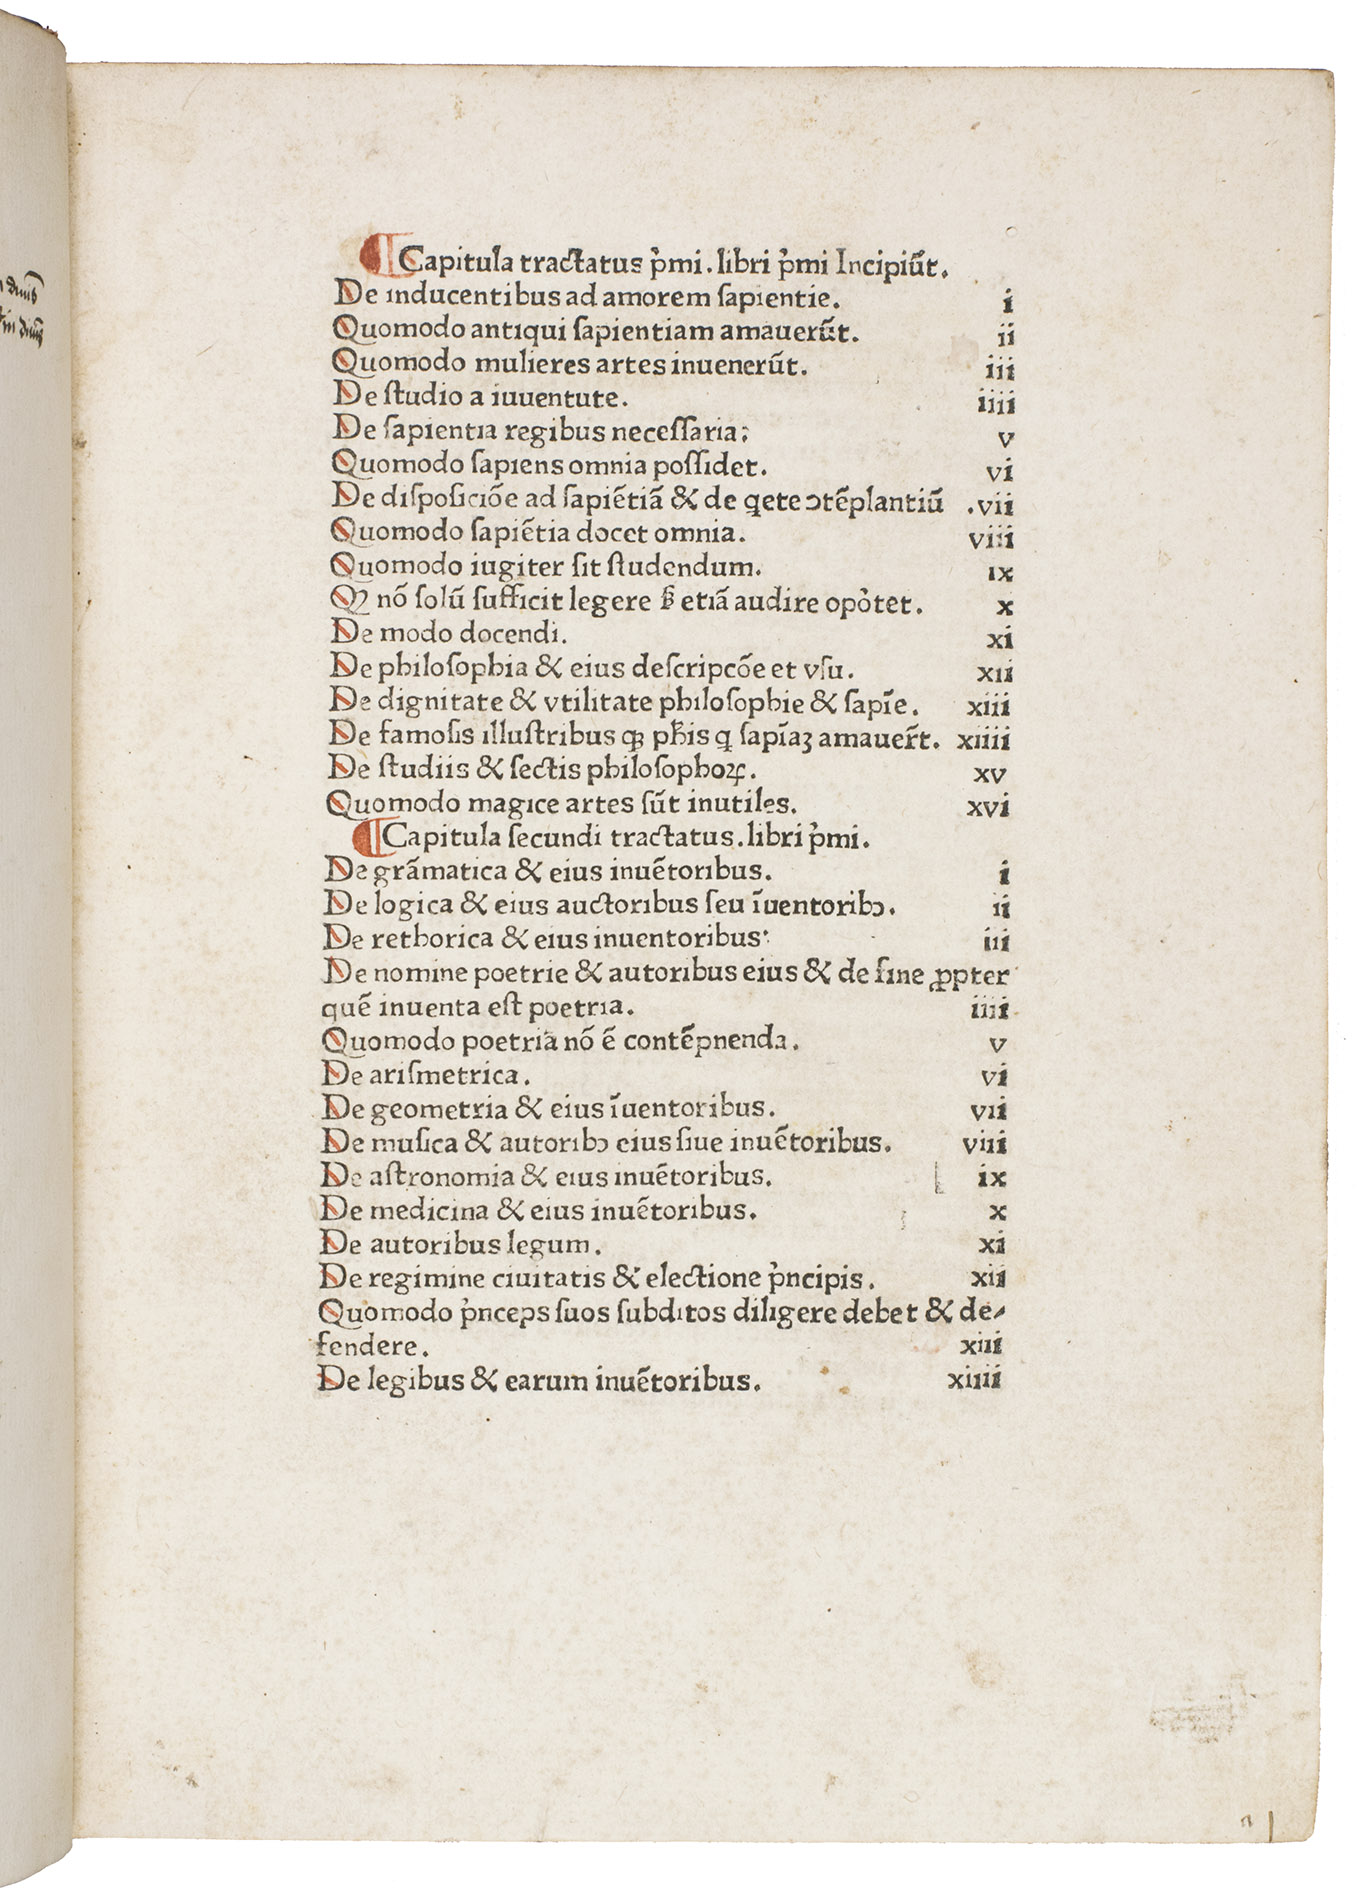 ¶ Capitula tractatus p̉mi. libri p̉mi Incipiūt.
De inducentibus ad amorem sapientie. i
Quomodo antiqui ſapientiam amauerūt. ii
Quomodo mulieres artes inuenerūt. iii
De ſtudio a iuuentute. iiii
De ſapientia regibus neceſſaria: v
Quomodo ſapiens omnia poſſidet. vi
De diſpoſiciōe ad ſapiētiā & de q̇ete ↄtēplantiū .vii
Quomodo ſapiētia docet omnia. viii
Quomodo iugiter ſit ſtudendum. ix
Qꝫ nō ſolū ſufficit legere ſꝫ etiā audire opo᷑tet. x
De modo docendi. xi
De philoſophia & eius deſcripcōe et vſu. xii
De dignitate & vtilitate philoſophie & ſapīe. xiii
De famoſis illuſtribus qꝫ ph̄is q̇ ſapīaꝫ amauer̄t. xiiii
De ſtudiis & ſectis philoſophoꝝ. xv
Quomodo magice artes ſūt inutiles. xvi
¶ Capitula ſecundi tractatus. libri p̉mi.
De grāmatica & eius inuētoribus. i
De logica & eius auctoribus ſeu īuentoribↄ. ii
De rethorica & eius inuentoribus: iii
De nomine poetrie & autoribus eius & de fine ꝓpter
quē inuenta eſt poetria. iiii
Quomodo poetria nō ē contēpnenda. v
De ariſmetrica. vi
De geometria & eius īuentoribus. vii
De muſica & autoribↄ eius ſiue inuētoribus. viii
De aſtronomia & eius inuētoribus. ix
De medicina & eius inuētoribus. x
De autoribus legum. xi
De regimine ciuitatis & electione p̉ncipis. xii
Quomodo p̉nceps ſuos ſubditos diligere debet & de⸗
fendere. xiii
De legibus & earum inuētoribus. xiiii